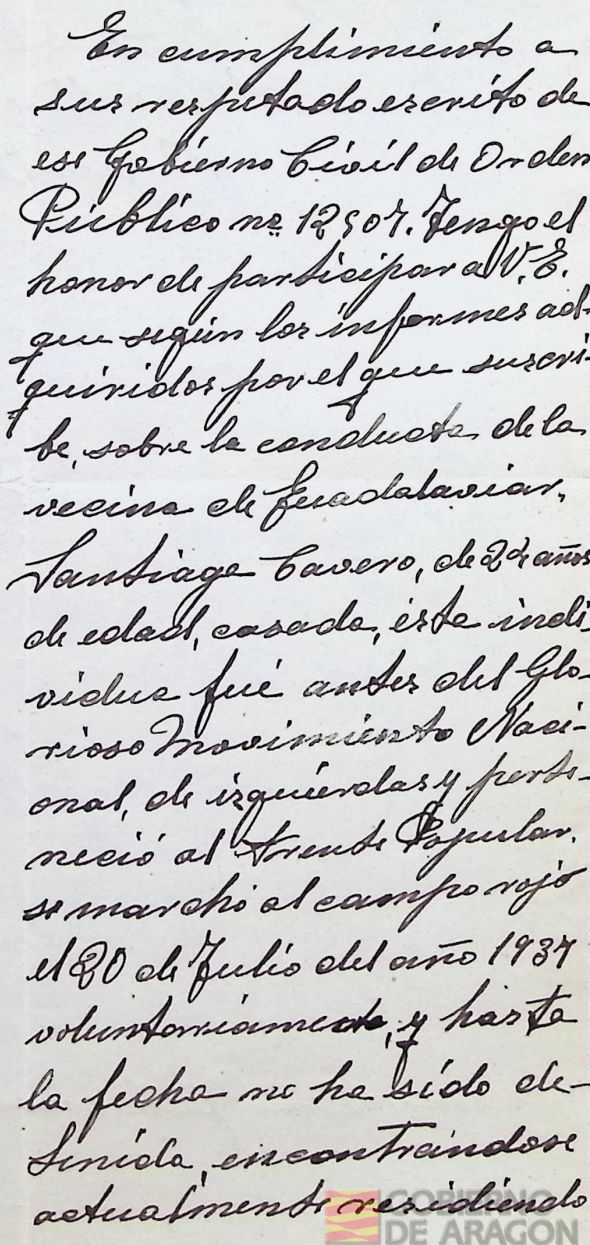 En cumplimiento a
sus respetado escrito de
ese Gobierno Civil de Orden
Público nº 12507. Tengo el
honor de participar a V.E.
que según los informes ad-
quiridos por el que suscri-
be, sobre la conducta de la
vecina de Guadalaviar,
Santiaga Cavero, de 24 años
de edad, casada, ésta indi
vidua fué antes del Glo-
rioso Movimiento Naci-
onal, de izquierdas y perte-
neció al Frente Popular.
se marchó al campo rojo
el 20 de Julio del año 1937
voluntariamente, y hasta
la fecha no ha sido de-
tenida, encontrándose
actualmente residiendo
GOBIERNO
DE ARAGON